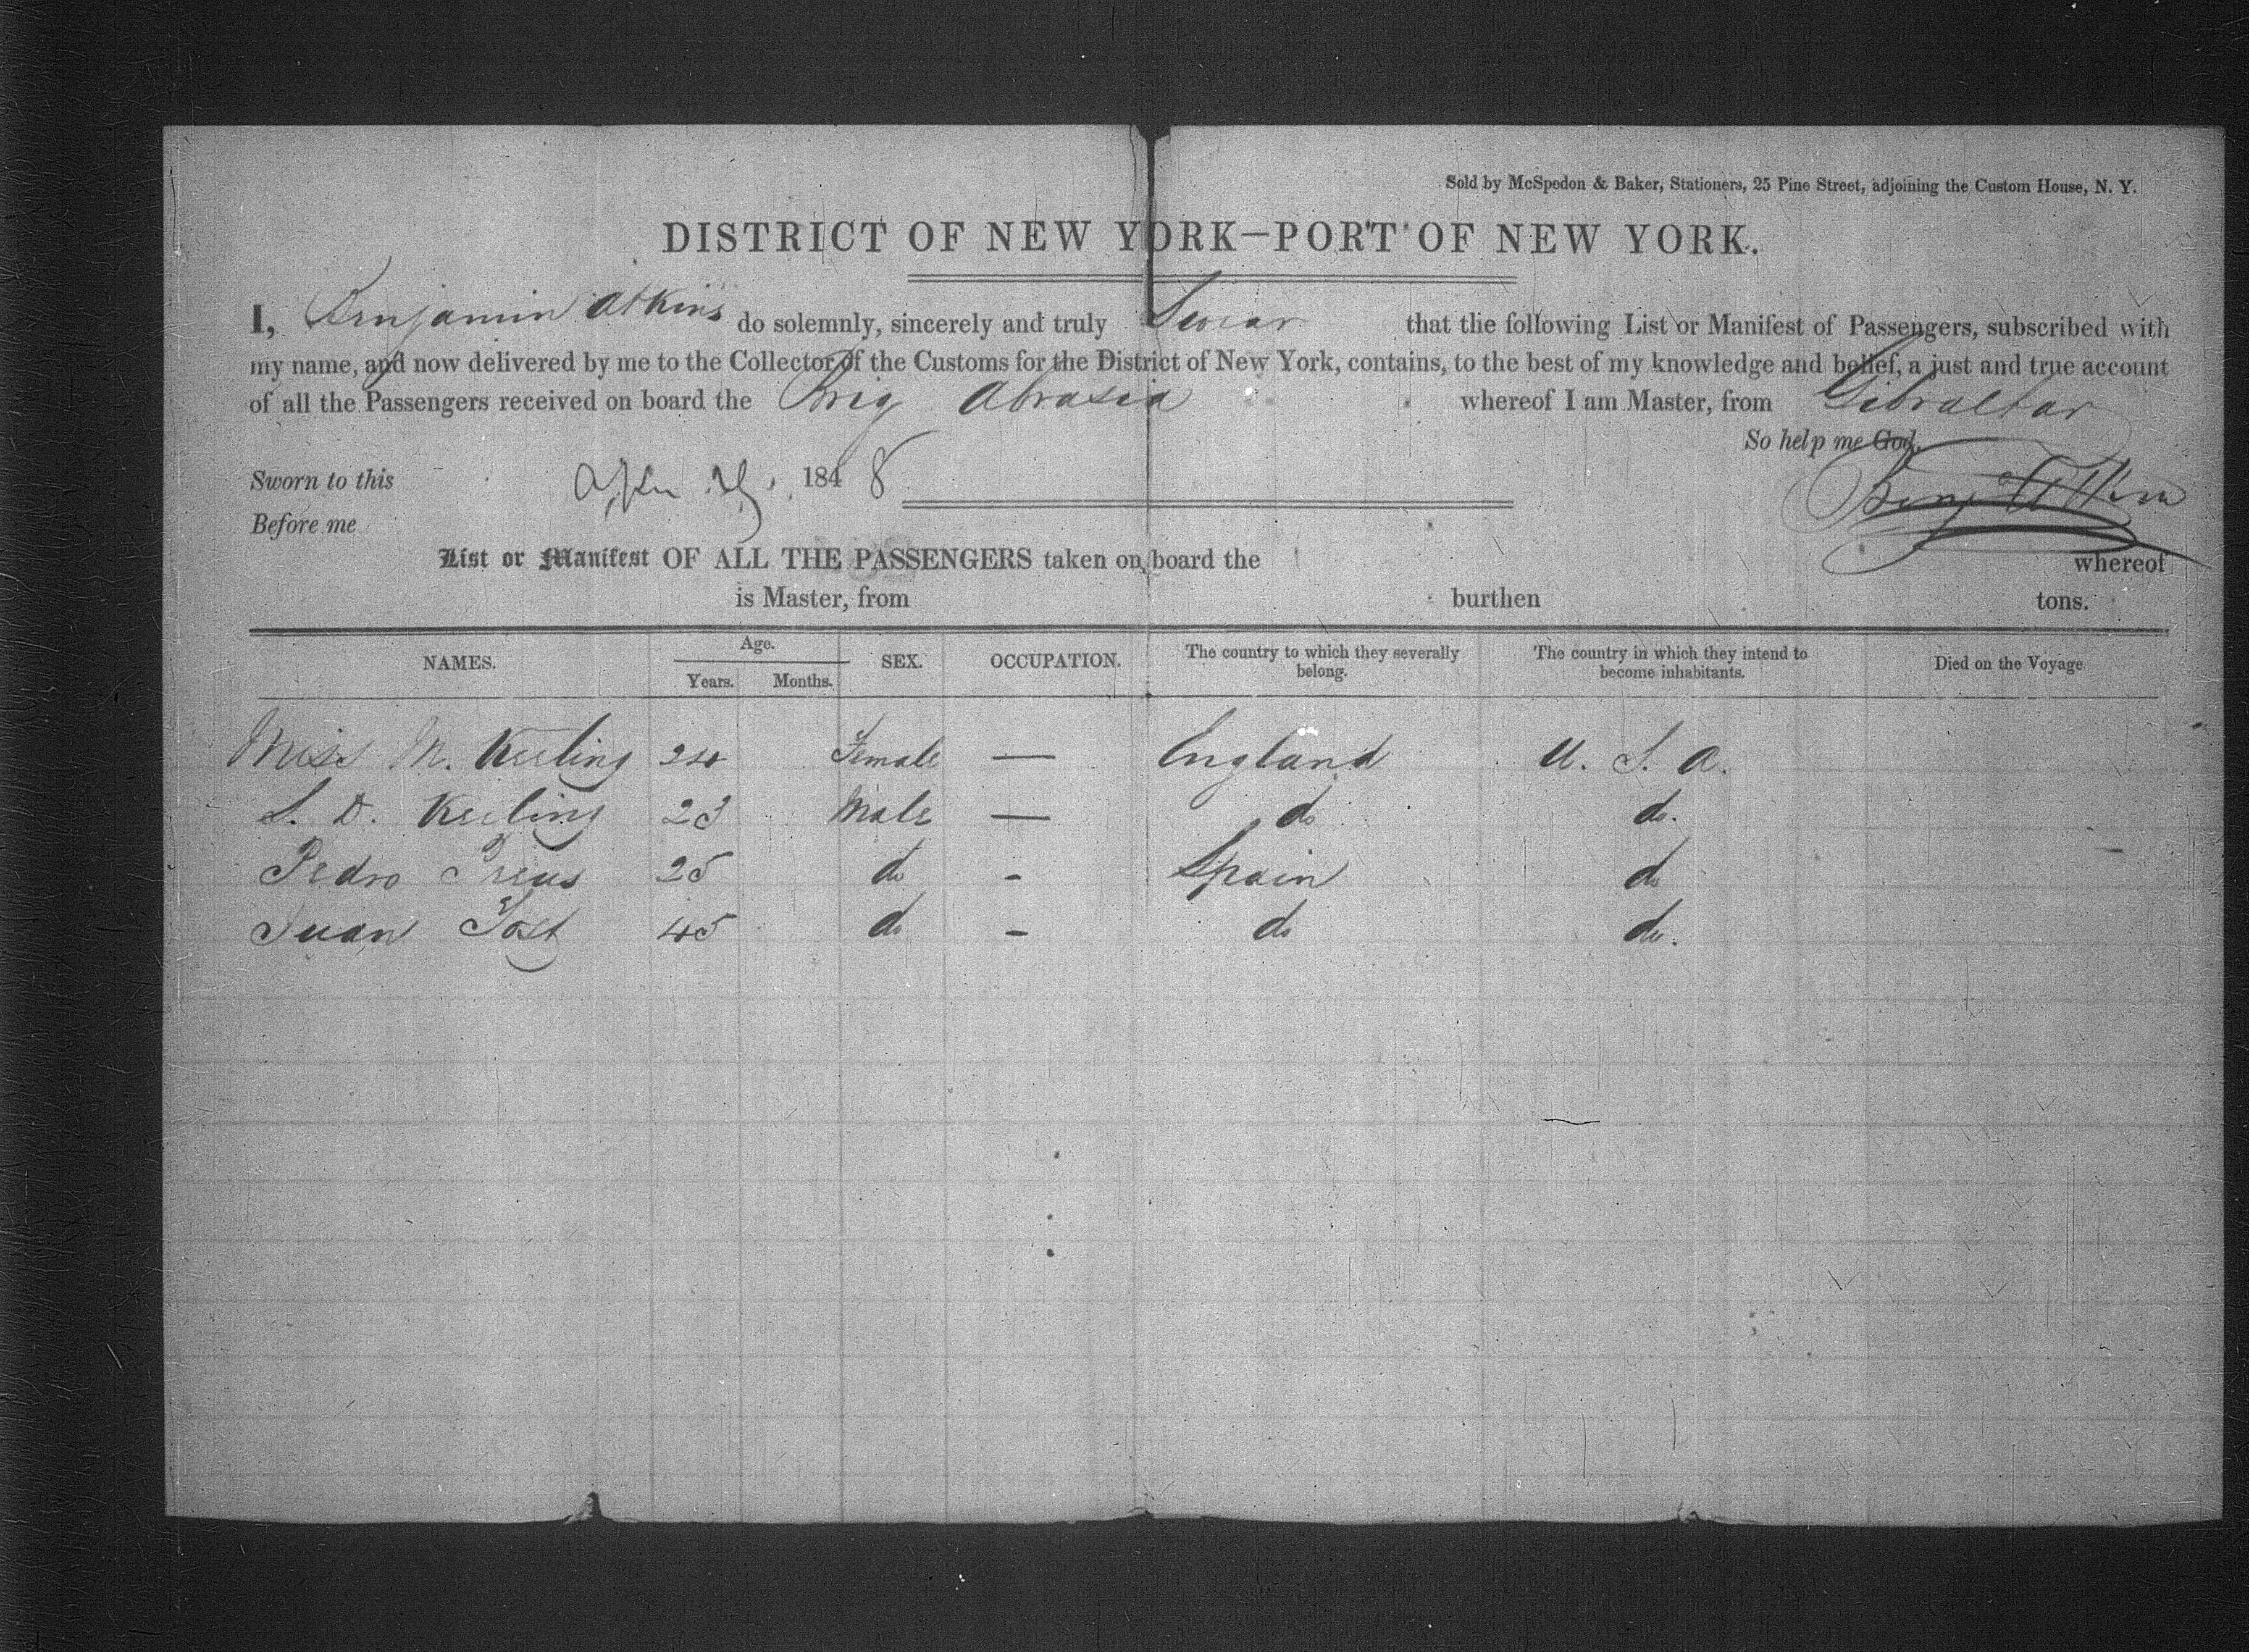 Sold by McSpedon & Baker, Stationers, 25 Pine Street, adjoining the Custom House, N. Y.
DISTRICT OF NEW YORK—PORT OF NEW YORK.
I, Benjamin Atkins do solemnly, sincerely and truly Swear that the following List or Manifest of Passengers, subscribed with
my name, and now delivered by me to the Collector of the Customs for the District of New York, contains, to the best of my knowledge and belief, a just and true account
of all the Passengers received on board the Brig Abrasia whereof I am Master, from Gibraltar
So help me God.
Sworn to this 1848
Benj Atkins
Before me
List or Manifest OF ALL THE PASSENGERS taken on board the whereof
is Master, from burthen tons.
NAMES. Age. Years. Months. SEX. OCCUPATION. The country to which they severally belong. The country in which they intend to become inhabitants. Died on the Voyage
Miss M. Keeling 24 Female — England U. S. A.
S. D. Keeling 23 Male — do do.
Pedro 25 do - Spain do
Juan 45 do - do do.